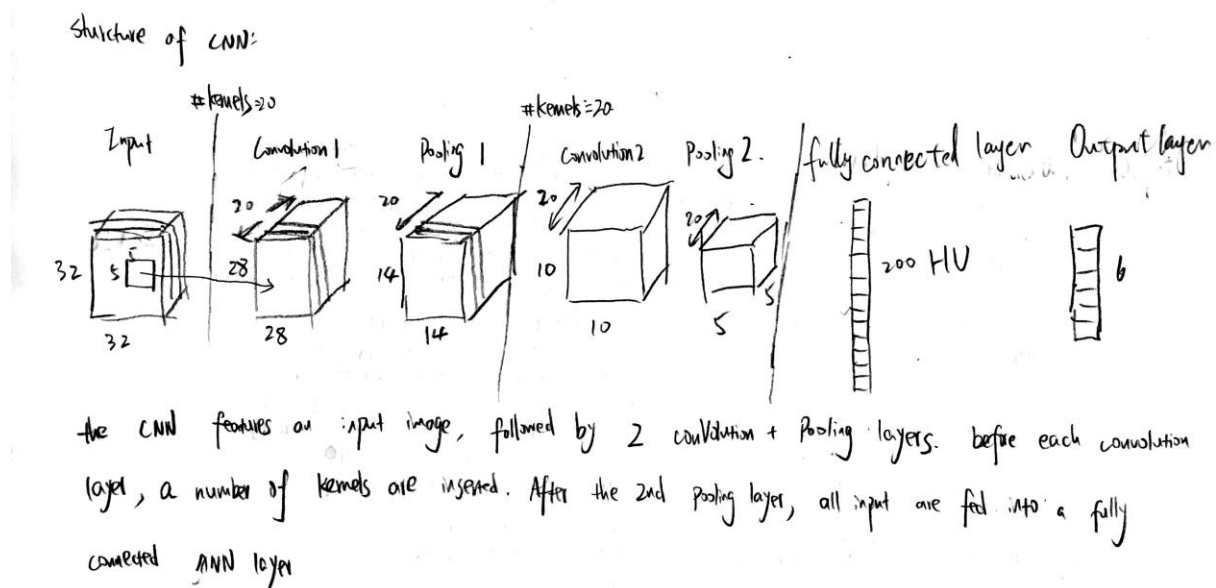 Sturcture of CNN:
#kernels=20
#kernels=20
Input
Convolution 1
Pooling 1
Convolution 2
Pooling 2.
fully connected layer
Output layer
20
20
20
20
32
5
5
28
14
10
5
200 HU
6
32
28
14
10
5
the CNN features an input image, followed by 2 convolution + Pooling layers. before each convolution
layer, a number of kernels are inserted. After the 2nd pooling layer, all input are fed into a fully
connected ANN layer